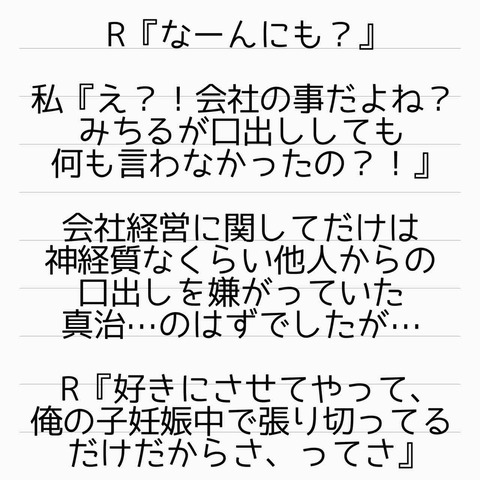 R『なーんにも？』
私『え？！会社の事だよね？
みちるが口出ししても
何も言わなかったの？！』
会社経営に関してだけは
神経質なくらい他人からの
口出しを嫌がっていた
真治…のはずでしたが…
R『好きにさせてやって、
俺の子妊娠中で張り切ってる
だけだからさ、ってさ』